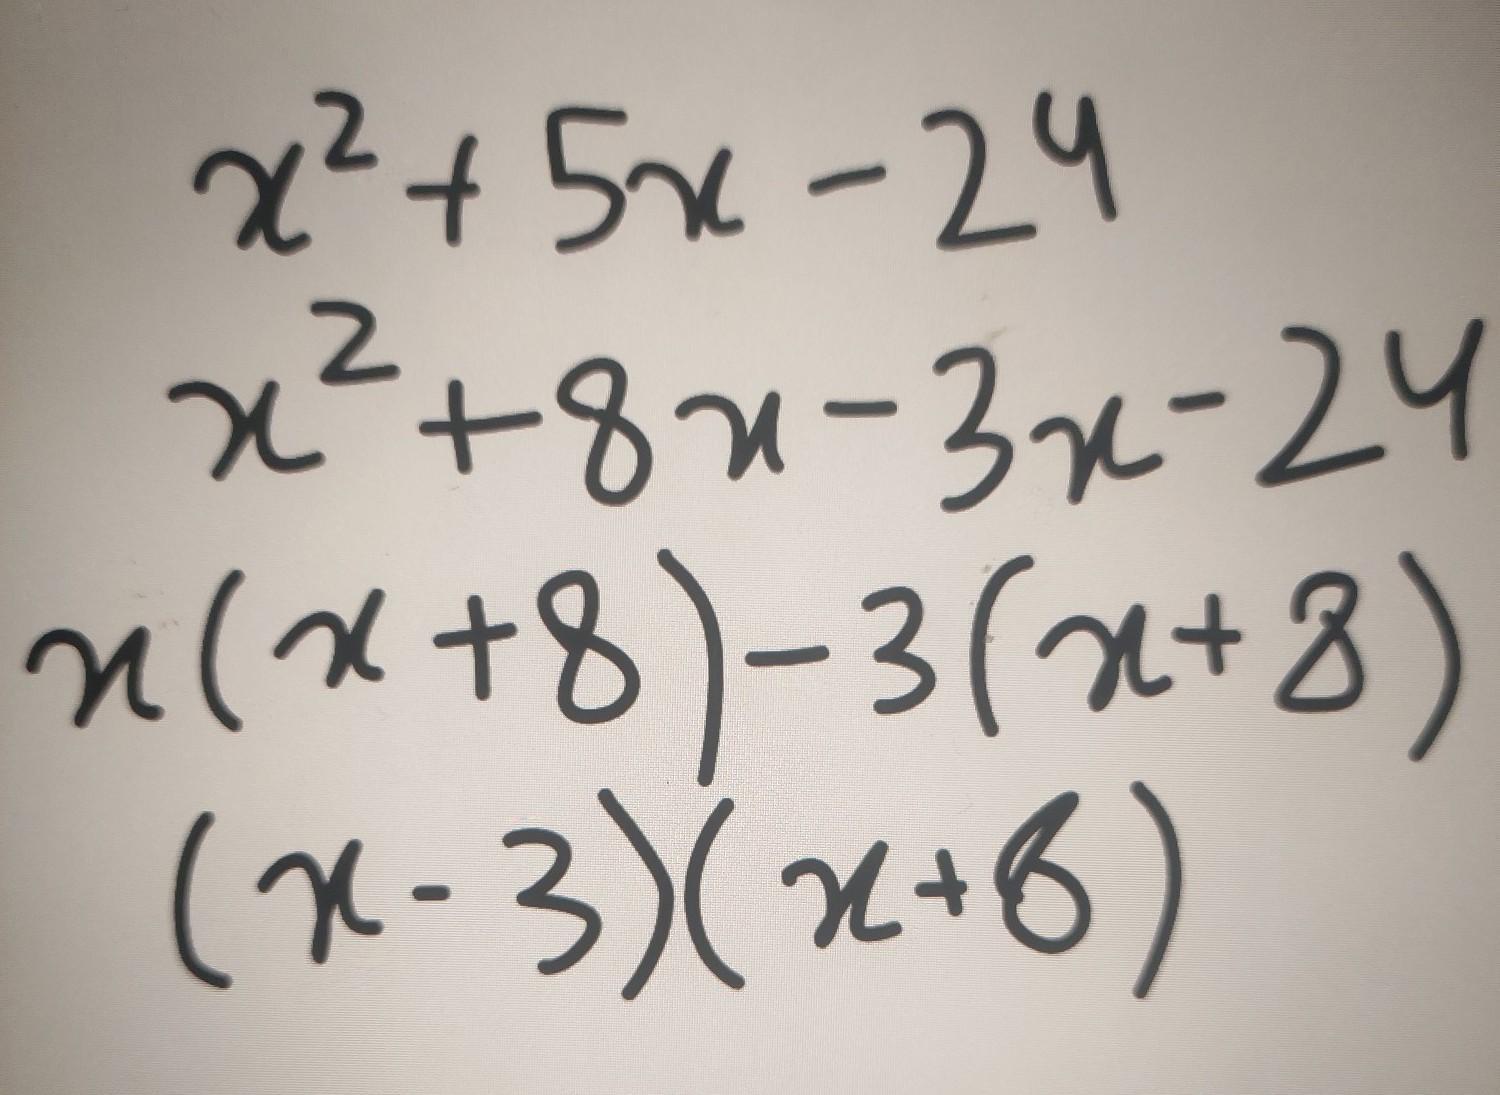 x² + 5x - 24
x² + 8x - 3x - 24
x(x + 8) - 3(x + 8)
(x - 3)(x + 8)